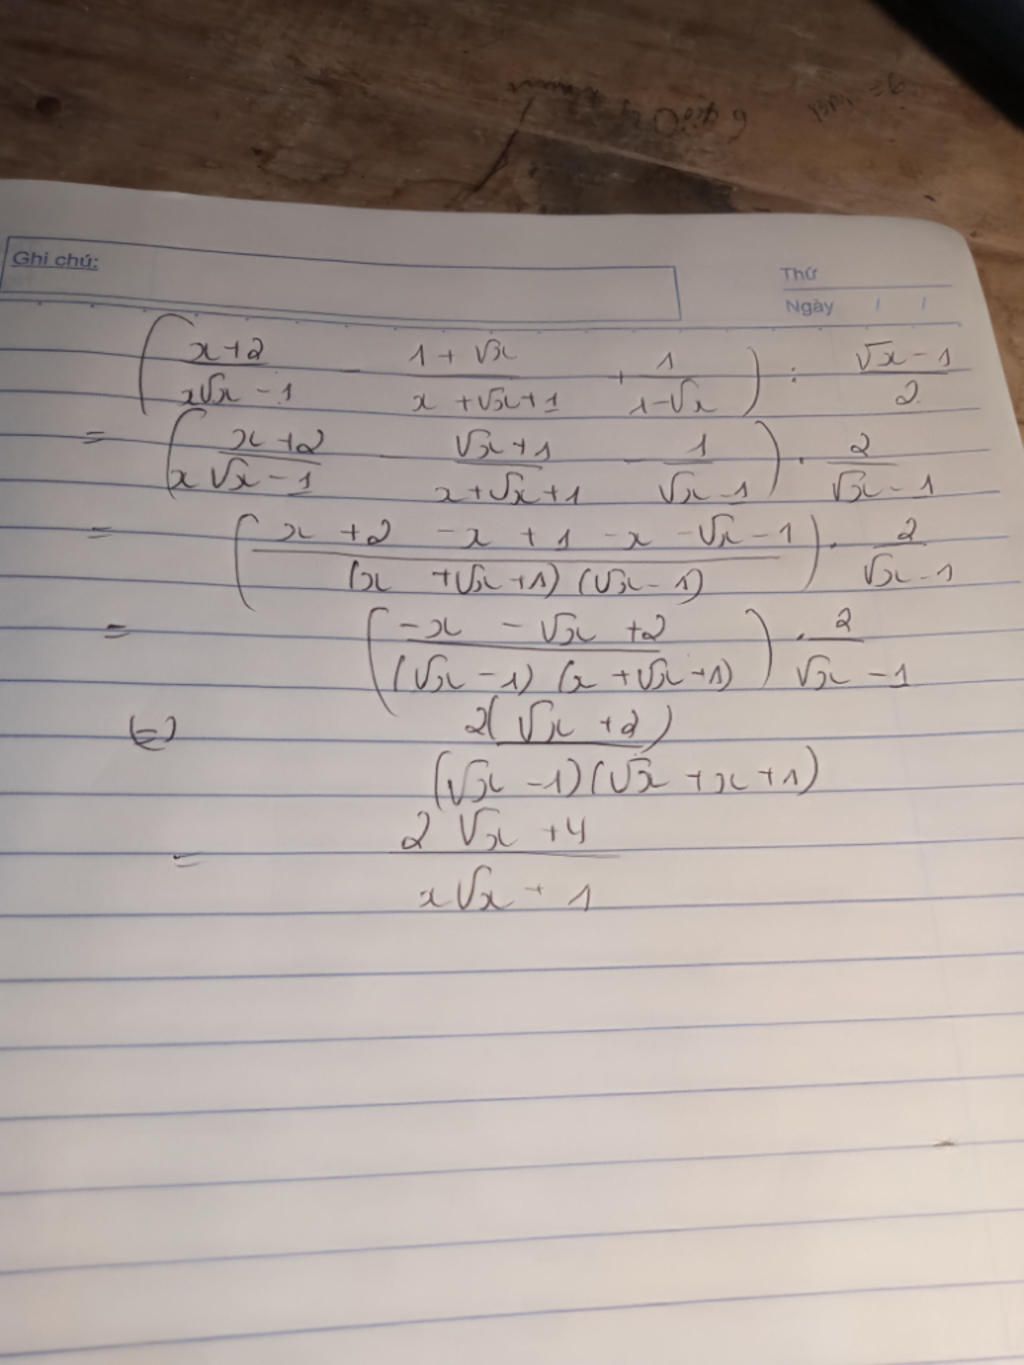 Ghi chú:
Thứ
Ngày / /
( (x+2)/(x√x - 1) - (1 + √x)/(x + √x + 1) + 1/(1-√x) ) : (√x - 1)/2
= ( (x+2)/(x√x - 1) - (√x+1)/(x+√x+1) - 1/(√x-1) ) . 2/(√x - 1)
= ( (x + 2 - x + 1 - x - √x - 1)/((x + √x + 1) (√x - 1)) ) . 2/(√x - 1)
= ( (-x - √x + 2)/((√x - 1) (x + √x + 1)) ) . 2/(√x - 1)
(=) 2(√x + 2)/((√x - 1)(√x + x + 1))
= (2√x + 4)/(x√x + 1)